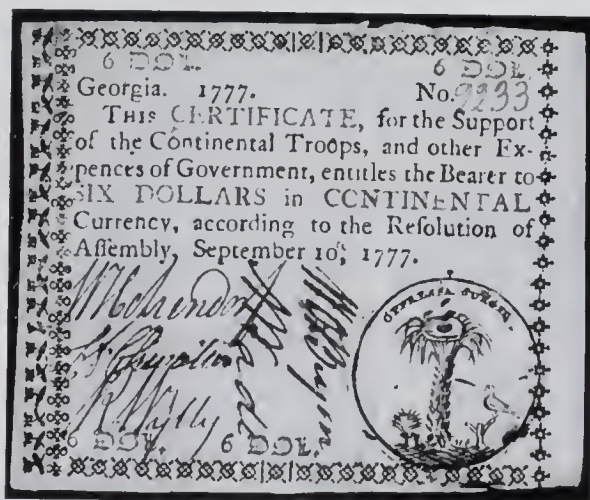 6 DOL. 6 DOL.
Georgia. 1777. No. 9233
THIS CERTIFICATE, for the Support
of the Continental Troops, and other Ex-
pences of Government, entitles the Bearer to
SIX DOLLARS in CONTINENTAL
Currency, according to the Resolution of
Assembly, September 10th, 1777.
OPPRESSA SURGIT.
R Wylly
6 DOL. 6 DOL.